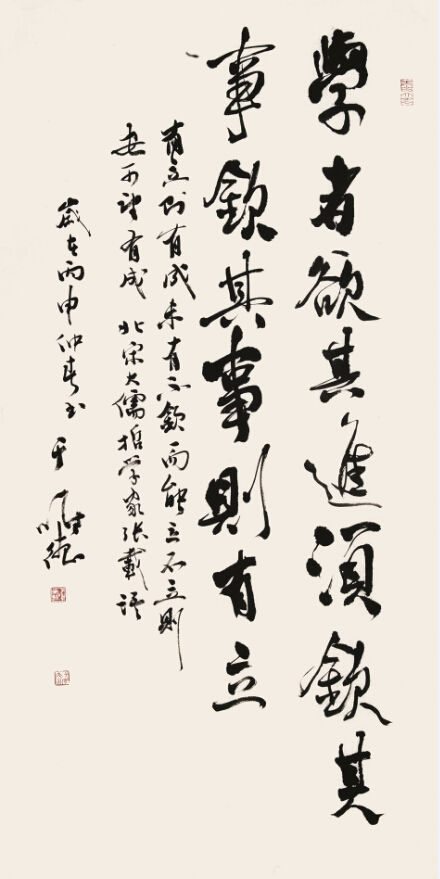 學者欲其進須欽其
事欽其事則有立
有立则有成未有不欽而能立不立則
安可望有成 北宋大儒哲學家张載語
歲在丙申仲春书